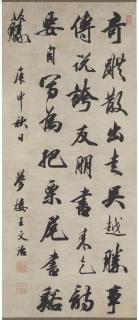 奇蹤散出走吳越勝事
傳說誇友朋書來乞詩
要自寫為把栗尾書谿
藤 庚申秋日 夢樓王文治